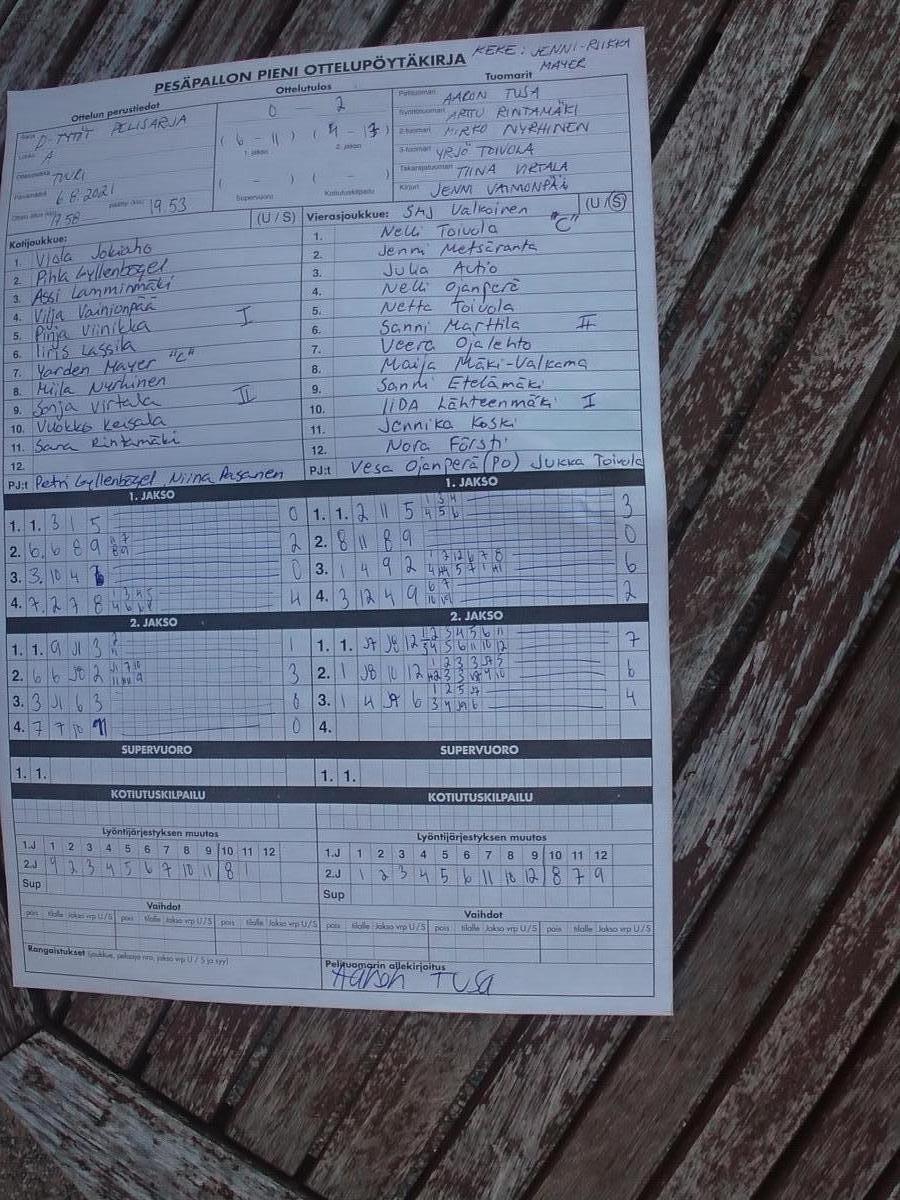 KEKE: JENNI-RIIKKA
MAYER
PESÄPALLON PIENI OTTELUPÖYTÄKIRJA
Ottelun perustiedot
Ottelutulos
Tuomarit
D-TYTÖT PELISARJA
A
6.8.2021
17.58 19.53
0 - 2
(6 - 11)
1. jakso 2. jakso
( ) ( - )
Supervuoro Kotiutuskilpailu
Pelituomari AARON TUSA
Syöttötuomari ARTTU RINTAMÄKI
2-tuomari MIRKO NYRHINEN
3-tuomari YRJÖ TOIVOLA
Takarajatuomari TIINA VIRTALA
Kirjuri JENNI VAINIONPÄÄ
Kotijoukkue: (U / S)
1. Viola Jokiaho
2. Pihla Gyllenbögel
3. Assi Lamminmäki
4. Vilja Vainionpää
5. Pinja Viinikka I
6. Iiris Lassila
7. Yarden Mayer "C"
8. Milja Nyrhinen
9. Sonja Virtala II
10. Vuokko Keisala
11. Sara Rintamäki
12.
PJ:t Petri Gyllenbögel, Niina Pesanen
Vierasjoukkue: SMJ Valkoinen (U / S)
1. Nelli Toivola "C"
2. Jenni Metsäranta
3. Julia Autio
4. Nelli Ojanperä
5. Netta Toivola
6. Sanni Marttila II
7. Veera Ojalehto
8. Maija Mäki-Valkama
9. Sanni Etelämäki
10. IIDA Lähteenmäki I
11. Jennika Koski
12. Nora Försti
PJ:t Vesa Ojanperä (PO) Jukka Toivola
1. JAKSO
1. 1. 3 1 5 0
2. 6 6 8 9 2
3. 3 10 4 0
4. 7 2 7 8 4
1. JAKSO
1. 1. 2 11 5 3
2. 8 11 8 9 0
3. 1 4 9 2 6
4. 3 12 4 9 2
2. JAKSO
1. 1. 9 J1 3 1
2. 6 6 J8 2 3
3. 3 J1 6 3 0
4. 7 7 10 11 0
2. JAKSO
1. 1. J7 J8 12 7
2. 1 J8 10 12 6
3. 1 4 J7 6 4
4.
SUPERVUORO
1. 1.
SUPERVUORO
1. 1.
KOTIUTUSKILPAILU
KOTIUTUSKILPAILU
Lyöntijärjestyksen muutos
1.J 1 2 3 4 5 6 7 8 9 10 11 12
2.J 9 2 3 4 5 6 7 10 11 8 1
Sup
Lyöntijärjestyksen muutos
1.J 1 2 3 4 5 6 7 8 9 10 11 12
2.J 1 2 3 4 5 6 11 10 12 8 7 9
Sup
Vaihdot
pois tilalle Jakso vrp U / S pois tilalle Jakso vrp U / S pois tilalle Jakso vrp U / S
Vaihdot
pois tilalle Jakso vrp U / S pois tilalle Jakso vrp U / S pois tilalle Jakso vrp U / S
Rangaistukset (joukkue, pelaaja nro, jakso vrp U / S ja syy)
Pelituomarin allekirjoitus
Aaron Tusa